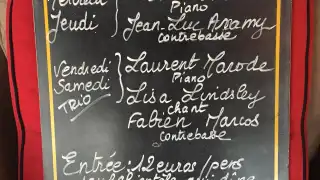 Mercredi
Piano
Jeudi
Jean-Luc Aramy
contrebasse
Vendredi
Laurent Marode
Samedi
Piano
TRIO
Lisa Lindsley
chant
Fabien Marcos
contrebasse
Entrée: 12 euros / pers